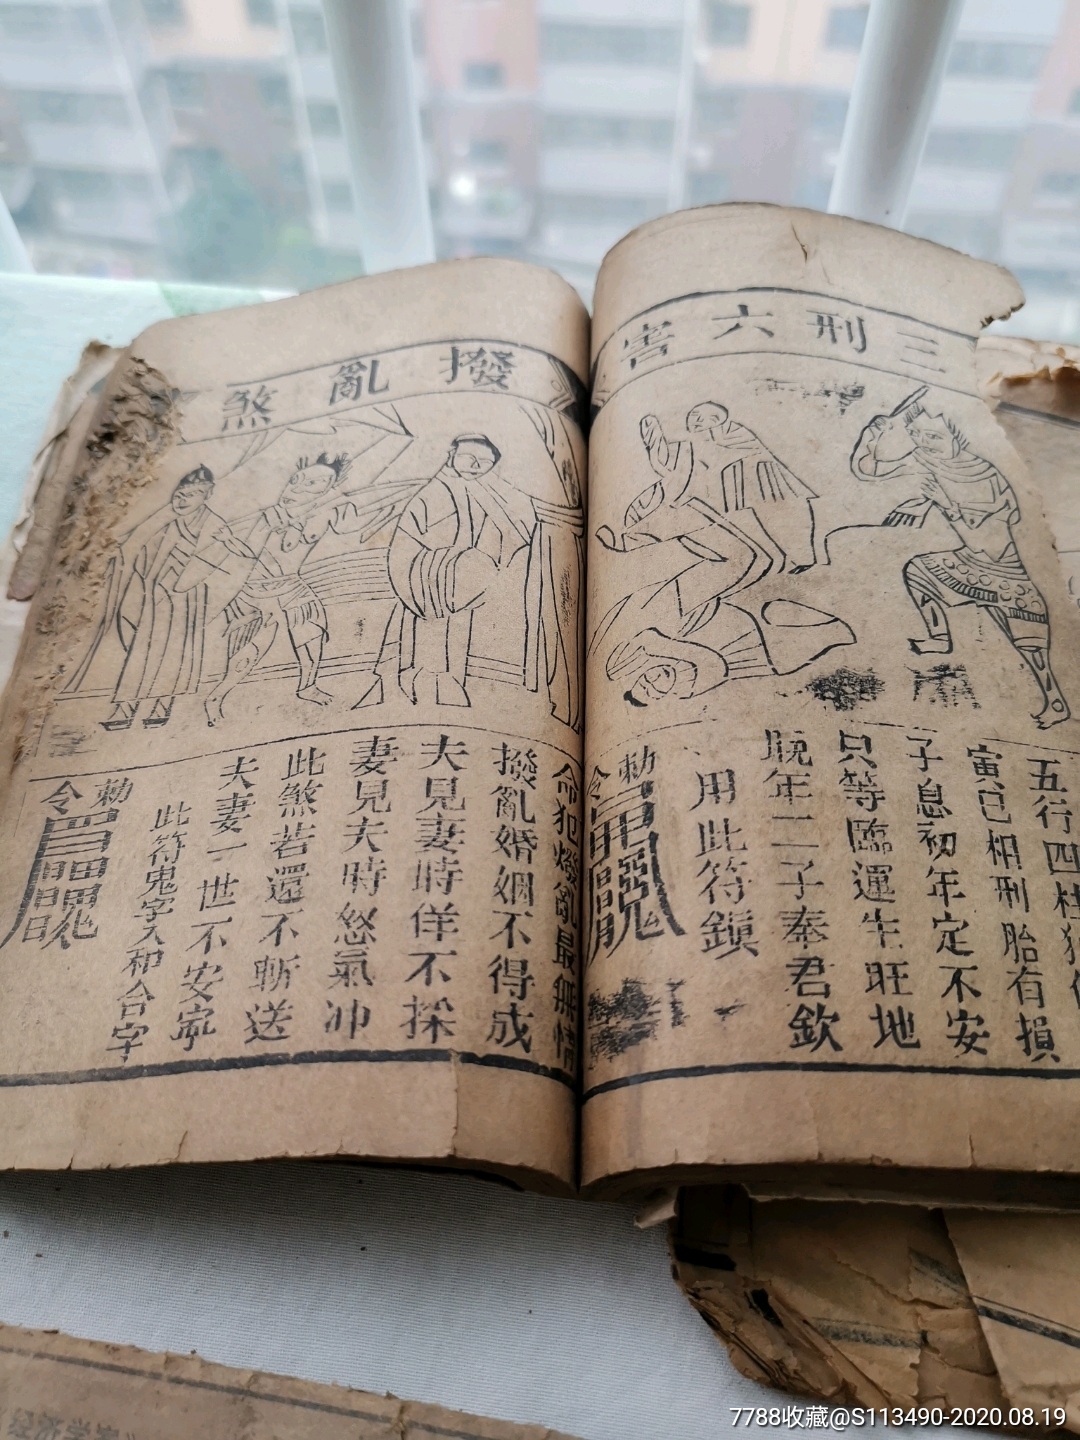 三刑六害
五行四柱犯
寅巳相刑胎有損
子息初年定不安
只等臨運生旺地
晚年二子奉君欽
用此符鎮
勅
令
撥亂煞
命犯撥亂最無情
撥亂婚姻不得成
夫見妻時佯不採
妻見夫時怒氣冲
此煞若還不斬送
夫妻一世不安寧
此符鬼字入和合字
勅
令
7788收藏@S113490-2020.08.19